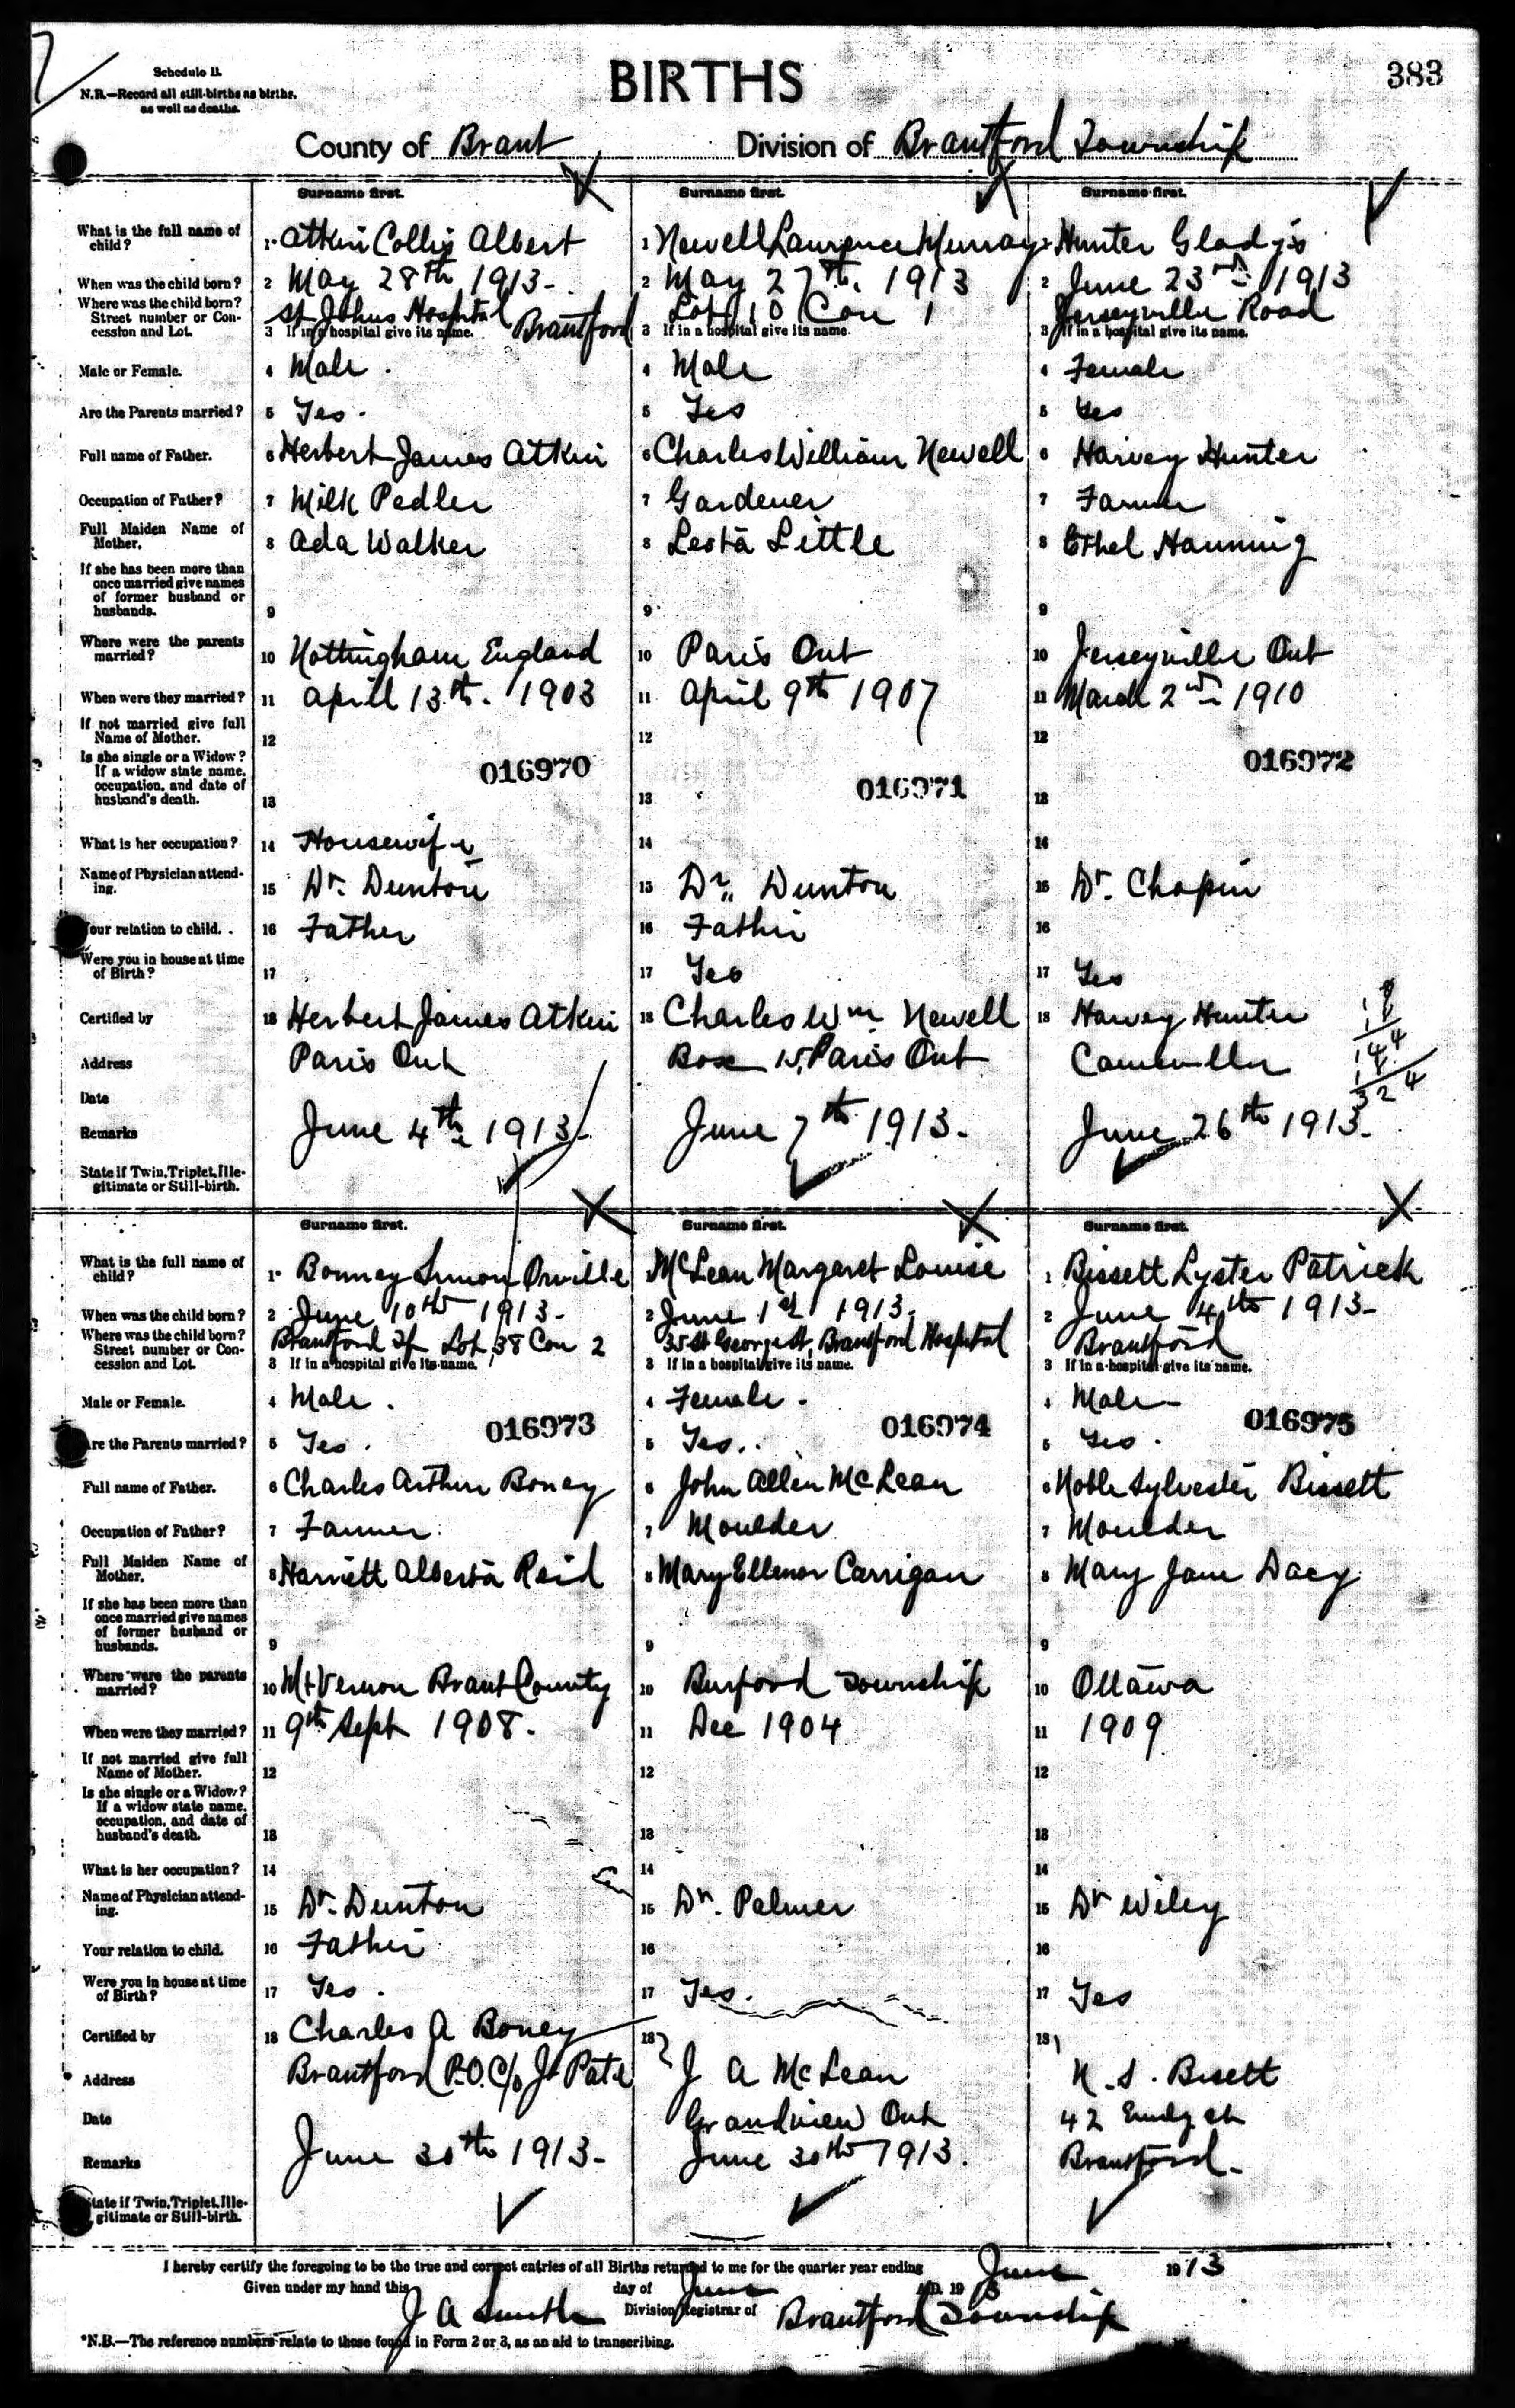 383
Schedule B.
N.B.—Record all still-births as births, as well as deaths.
BIRTHS
County of Brant Division of Brantford Township
Surname first. Surname first. Surname first.
What is the full name of child? 1 Atkin Collis Albert 1 Newell Laurence Murray 1 Hunter Gladys
When was the child born? 2 May 28th 1913- 2 May 27th. 1913 2 June 23rd 1913
Where was the child born? Street number or Concession and Lot. St Johns Hospital Brantford Lot 10 Con 1 Jerseyville Road
3 If in a hospital give its name. 3 If in a hospital give its name. 3 If in a hospital give its name.
Male or Female. 4 Male. 4 Male 4 Female
Are the Parents married? 5 Yes. 5 Yes 5 Yes
Full name of Father. 6 Herbert James Atkin 6 Charles William Newell 6 Harvey Hunter
Occupation of Father? 7 Milk Pedler 7 Gardener 7 Farmer
Full Maiden Name of Mother. 8 Ada Walker 8 Leota Little 8 Ethel Hanning
If she has been more than once married give names of former husband or husbands. 9 9 9
Where were the parents married? 10 Nottingham England 10 Paris Ont 10 Jerseyville Ont
When were they married? 11 Aprill 13th. 1903 11 April 9th 1907 11 March 2nd 1910
If not married give full Name of Mother. 12 12 12
Is she single or a Widow? If a widow state name, occupation, and date of husband's death. 13 13 13
016970 016971 016972
What is her occupation? 14 Housewife 14 14
Name of Physician attending. 15 Dr. Dunton 15 Dr. Dunton 15 Dr. Chapin
Your relation to child. 16 Father 16 Father 16
Were you in house at time of Birth? 17 17 Yes 17 Yes
Certified by 18 Herbert James Atkin 18 Charles Wm Newell 18 Harvey Hunter
Address Paris Ont Box 15, Paris Ont Cainsville
Date
Remarks June 4th 1913- June 7th 1913. June 26th 1913.
18
144
18
324
State if Twin, Triplet, Illegitimate or Still-birth.
Surname first. Surname first. Surname first.
What is the full name of child? 1 Bonney Simon Orville 1 McLean Margaret Louise 1 Bissett Lyster Patrick
When was the child born? 2 June 10th 1913- 2 June 1st 1913. 2 June 4th 1913-
Where was the child born? Street number or Concession and Lot. Brantford Tp Lot 38 Con 2 35 St George St, Brantford Hospital Brantford
3 If in a hospital give its name. 3 If in a hospital give its name. 3 If in a hospital give its name.
Male or Female. 4 Male. 4 Female. 4 Male
016973 016974 016975
Are the Parents married? 5 Yes. 5 Yes. 5 Yes.
Full name of Father. 6 Charles Arthur Boney 6 John Allen McLean 6 Noble Sylvester Bissett
Occupation of Father? 7 Farmer. 7 Moulder 7 Moulder
Full Maiden Name of Mother. 8 Harriett Alberta Reid 8 Mary Ellenor Carrigan 8 Mary Jane Dacy
If she has been more than once married give names of former husband or husbands. 9 9 9
Where were the parents married? 10 Mt Vernon Brant County 10 Burford Township 10 Ottawa
When were they married? 11 9th Sept 1908. 11 Dec 1904 11 1909
If not married give full Name of Mother. 12 12 12
Is she single or a Widow? If a widow state name, occupation, and date of husband's death. 13 13 13
What is her occupation? 14 14 14
Name of Physician attending. 15 Dr. Dunton 15 Dr. Palmer 15 Dr Wiley
Your relation to child. 16 Father 16 16
Were you in house at time of Birth? 17 Yes. 17 Yes. 17 Yes
Certified by 18 Charles A Boney 18 J A McLean 18 N. S. Bisett
Address Brantford P.O. C/o Jo Pate Grandview Ont 42 Emily St
Date
Remarks June 30th 1913- June 30th 1913. Brantford-
State if Twin, Triplet, Illegitimate or Still-birth.
I hereby certify the foregoing to be the true and correct entries of all Births returned to me for the quarter year ending June 1913
Given under my hand this day of June A.D. 1913
J A Smith Division Registrar of Brantford Township
*N.B.—The reference numbers relate to those found in Form 2 or 3, as an aid to transcribing.